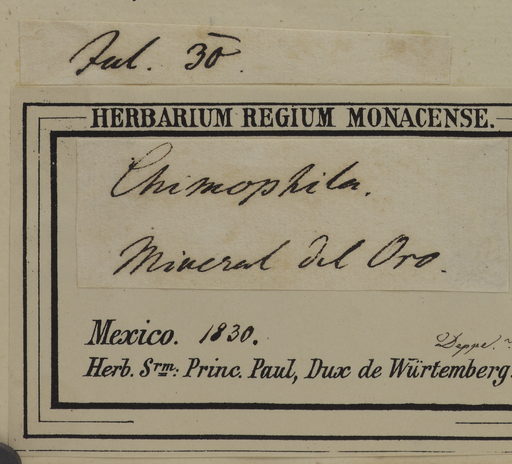 Jul. 30.
HERBARIUM REGIUM MONACENSE.
Chimophila.
Mineral del Oro.
Mexico. 1830.
Deppe.
Herb. Srm: Princ. Paul, Dux de Würtemberg.